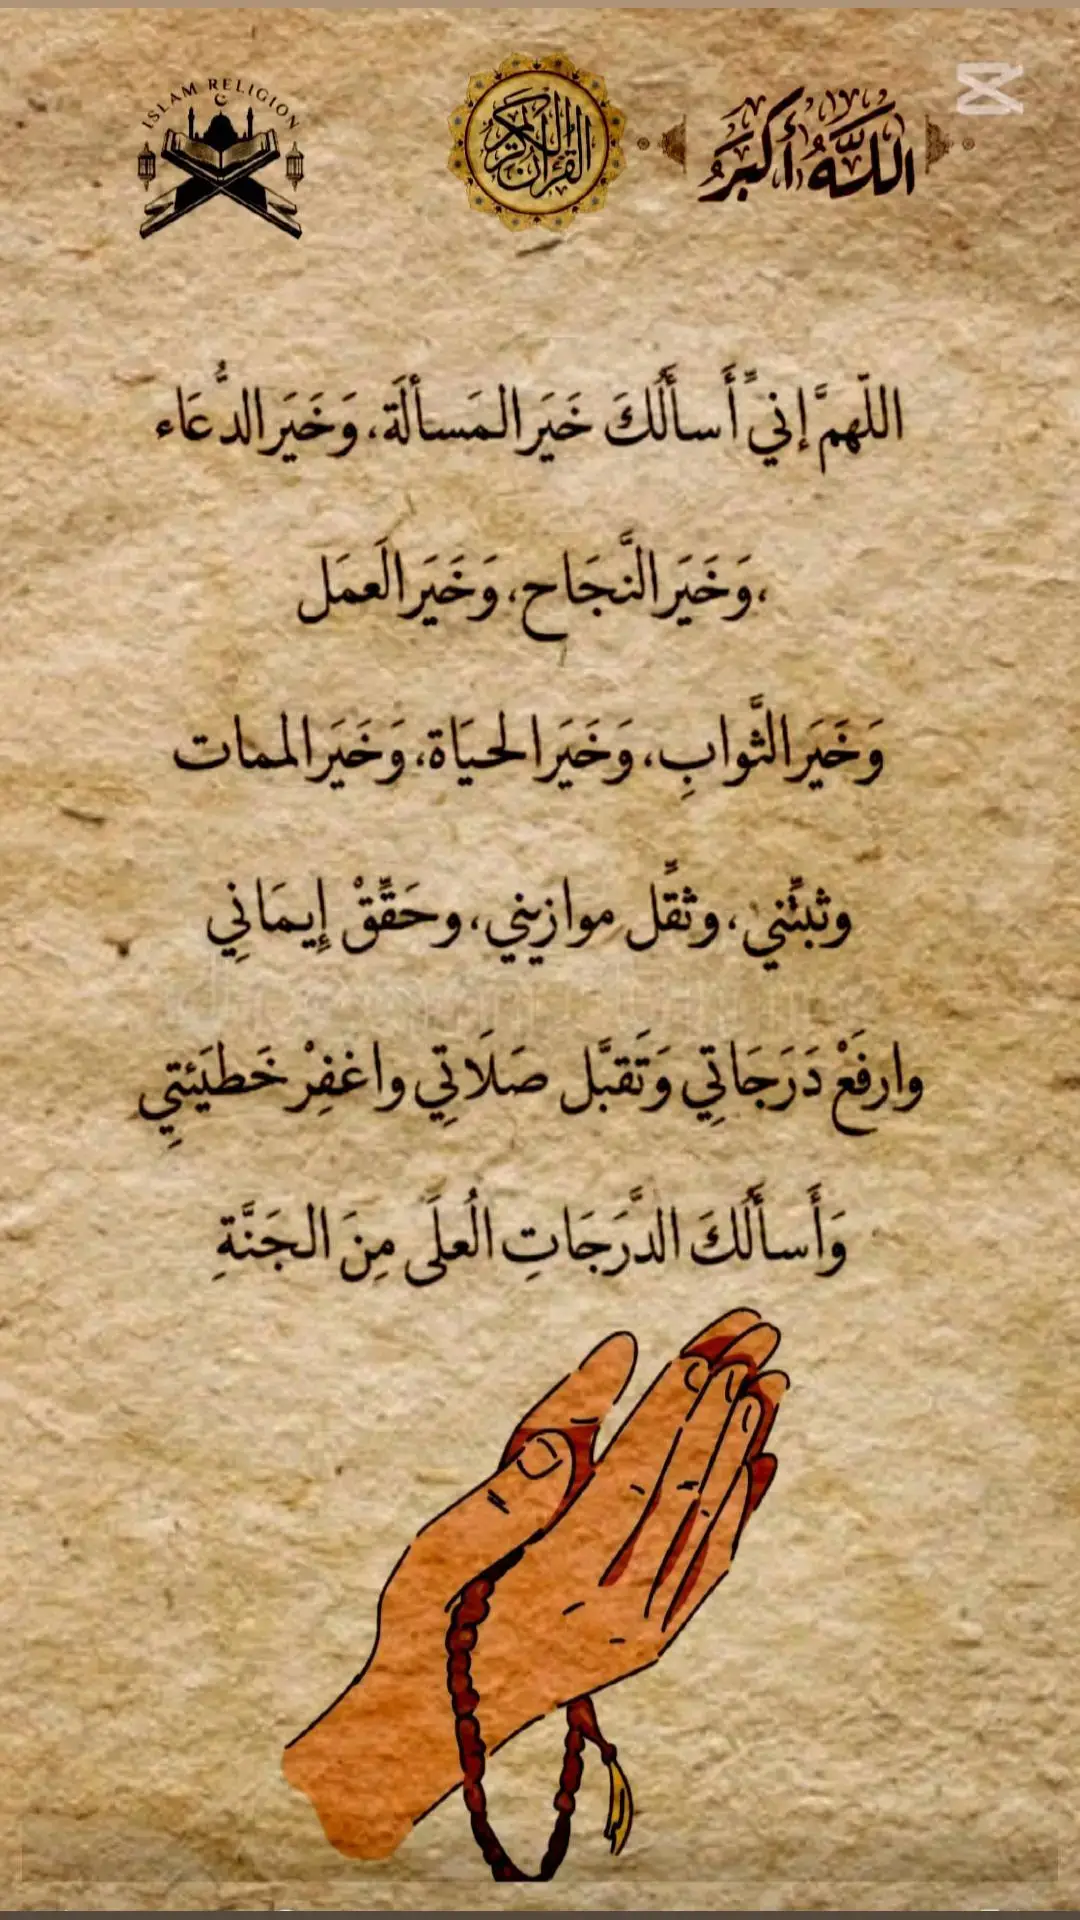 ISLAM RELIGION
القرآن الكريم
اللَّهُ أَكْبَرُ
اللّهمَّ إنيِّ أَسألُكَ خَيَر المَسألَة، وَخَيَر الدُّعَاء
،وَخَيَر النَّجَاح، وَخَيَر العَمَل
وَخَيَر الثَّوابِ، وَخَيَر الحيَاة، وَخَيَر الممات
وثبِّتني، وثقِّل موازيني، وحَقِّقْ إِيمَانِي
وارفَعْ دَرَجَاتِي وَتَقبَّل صَلَاتِي واغفِرْ خَطيَئتِي
وَأَسألُكَ الدَّرَجَاتِ العُلَى مِنَ الجَنَّةِ